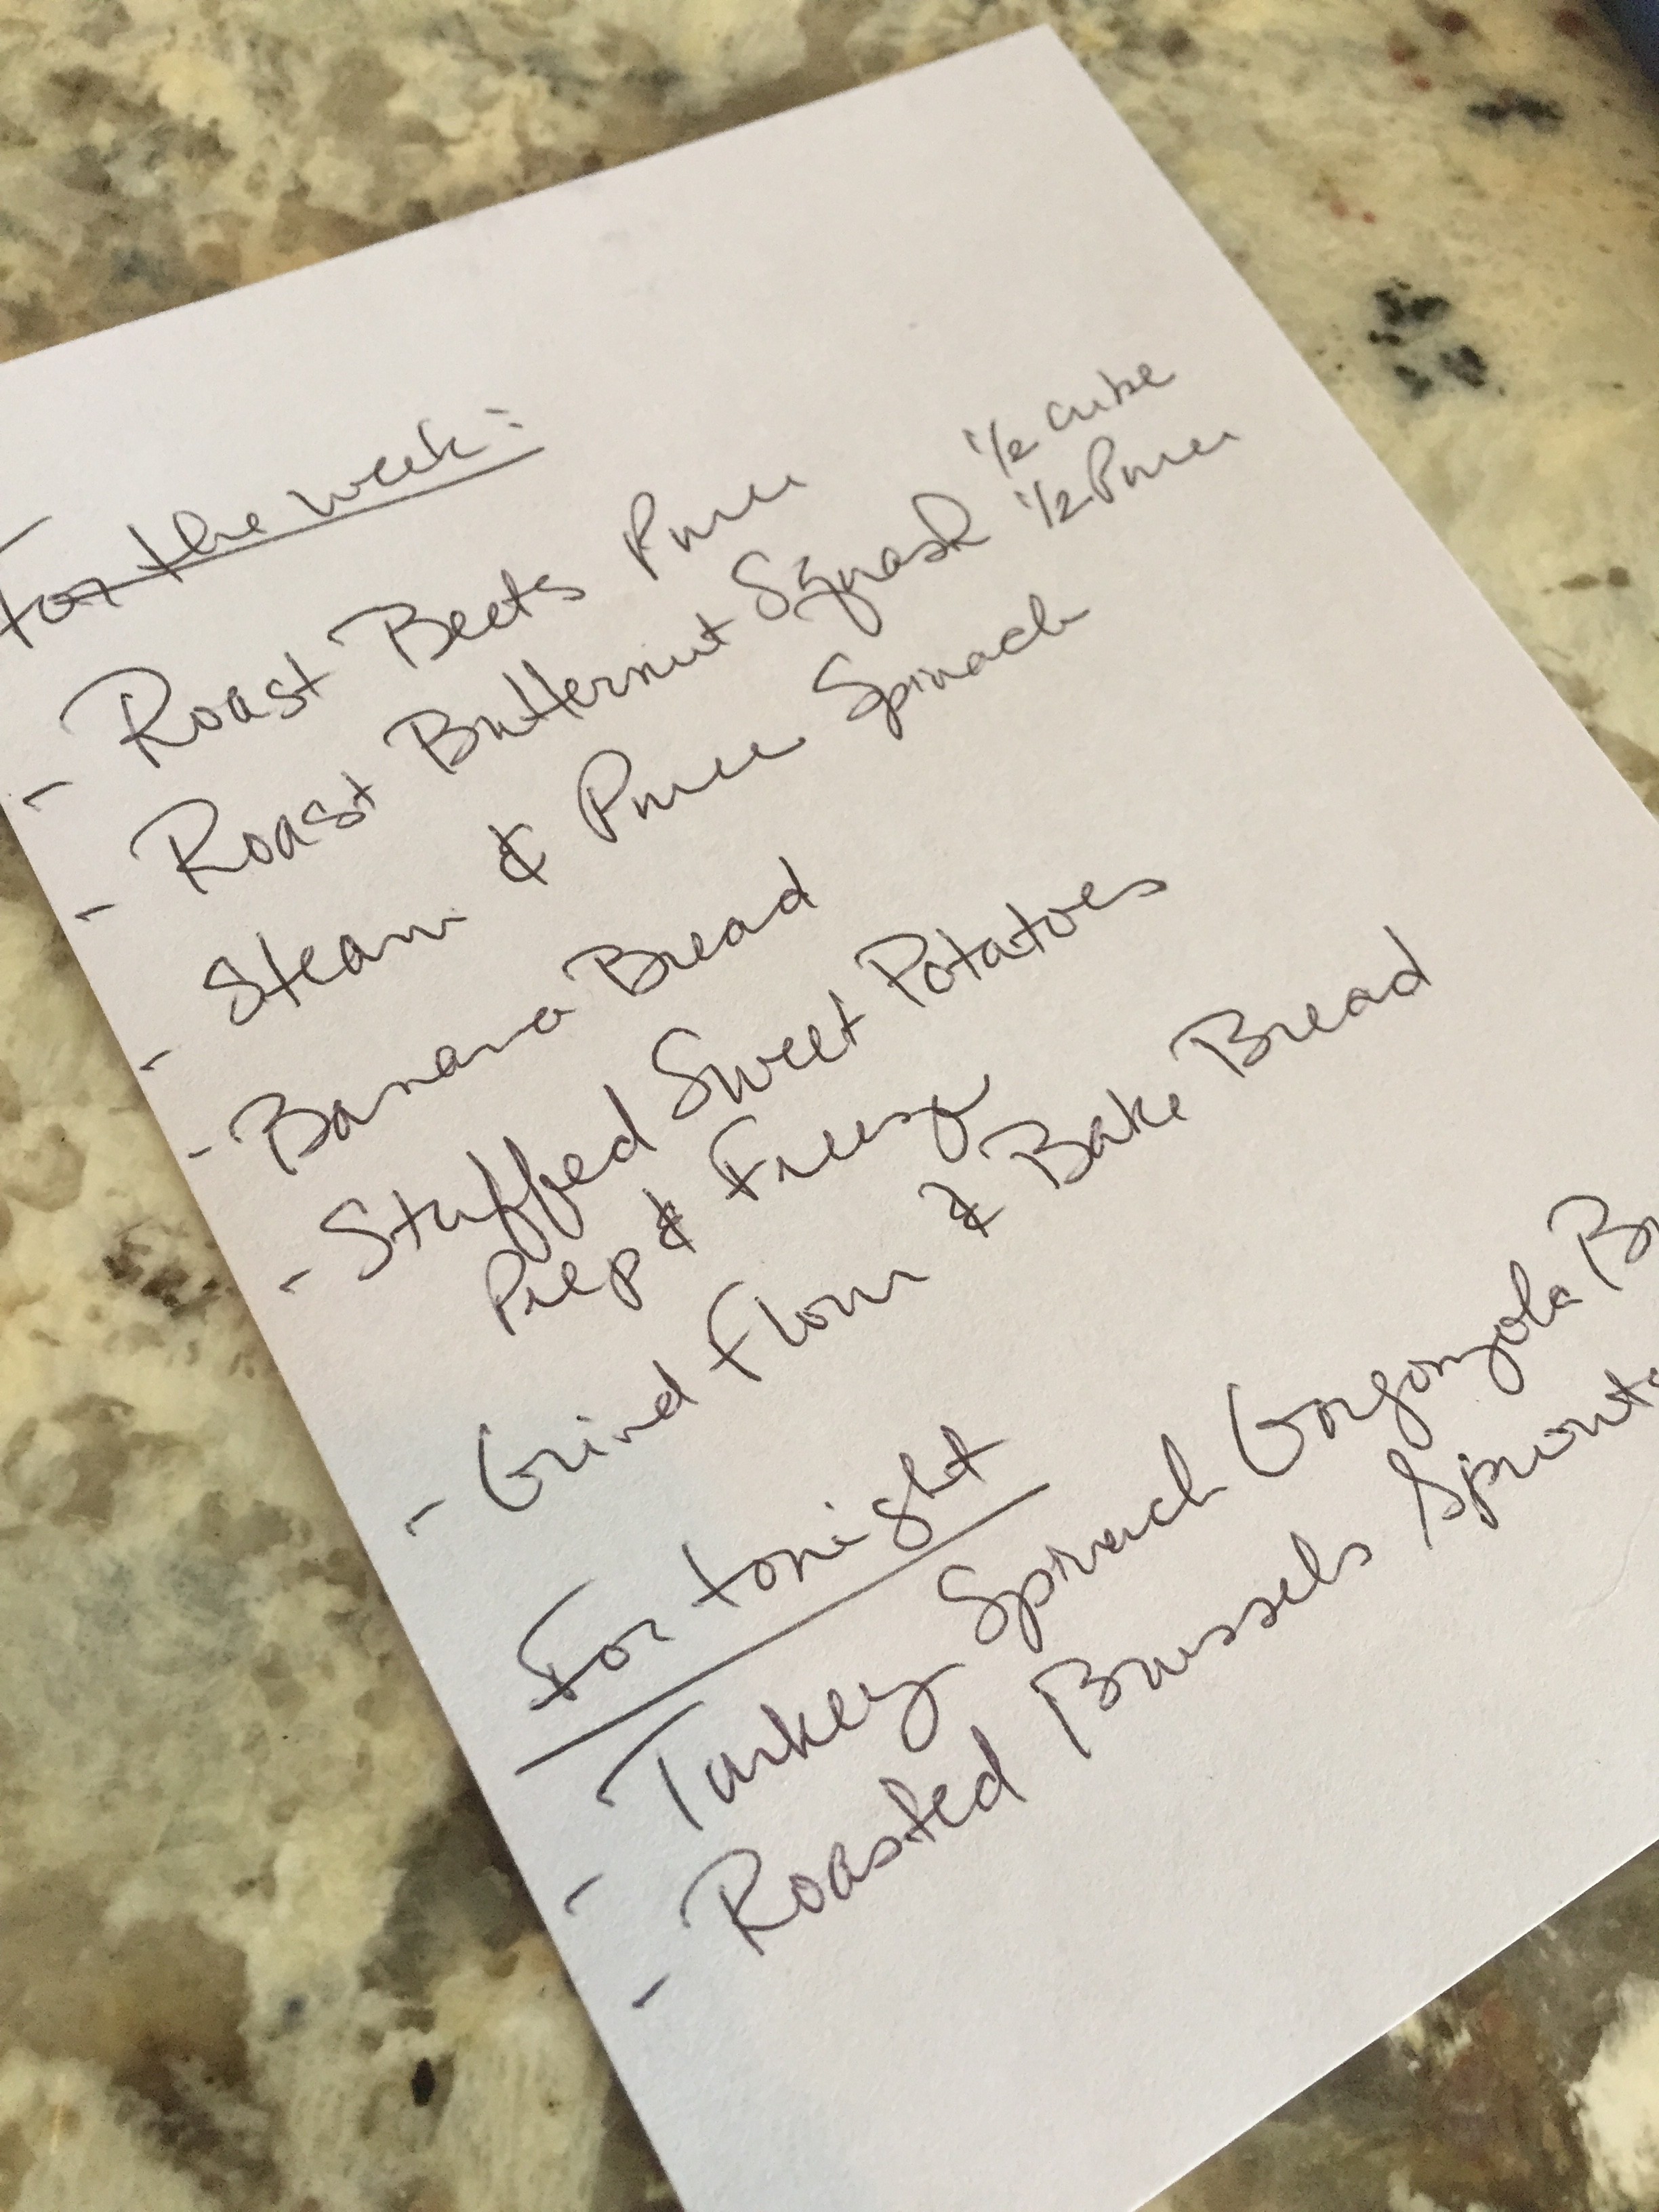 For the week:
- Roast Beets Puree
- Roast Butternut Squash 1/2 cube
1/2 Puree
- Steam & Puree Spinach
- Banana Bread
- Stuffed Sweet Potatoes
Prep & Freeze
- Grind Flour & Bake Bread
For tonight
- Turkey Spinach Gorgonzola
- Roasted Brussels Sprouts